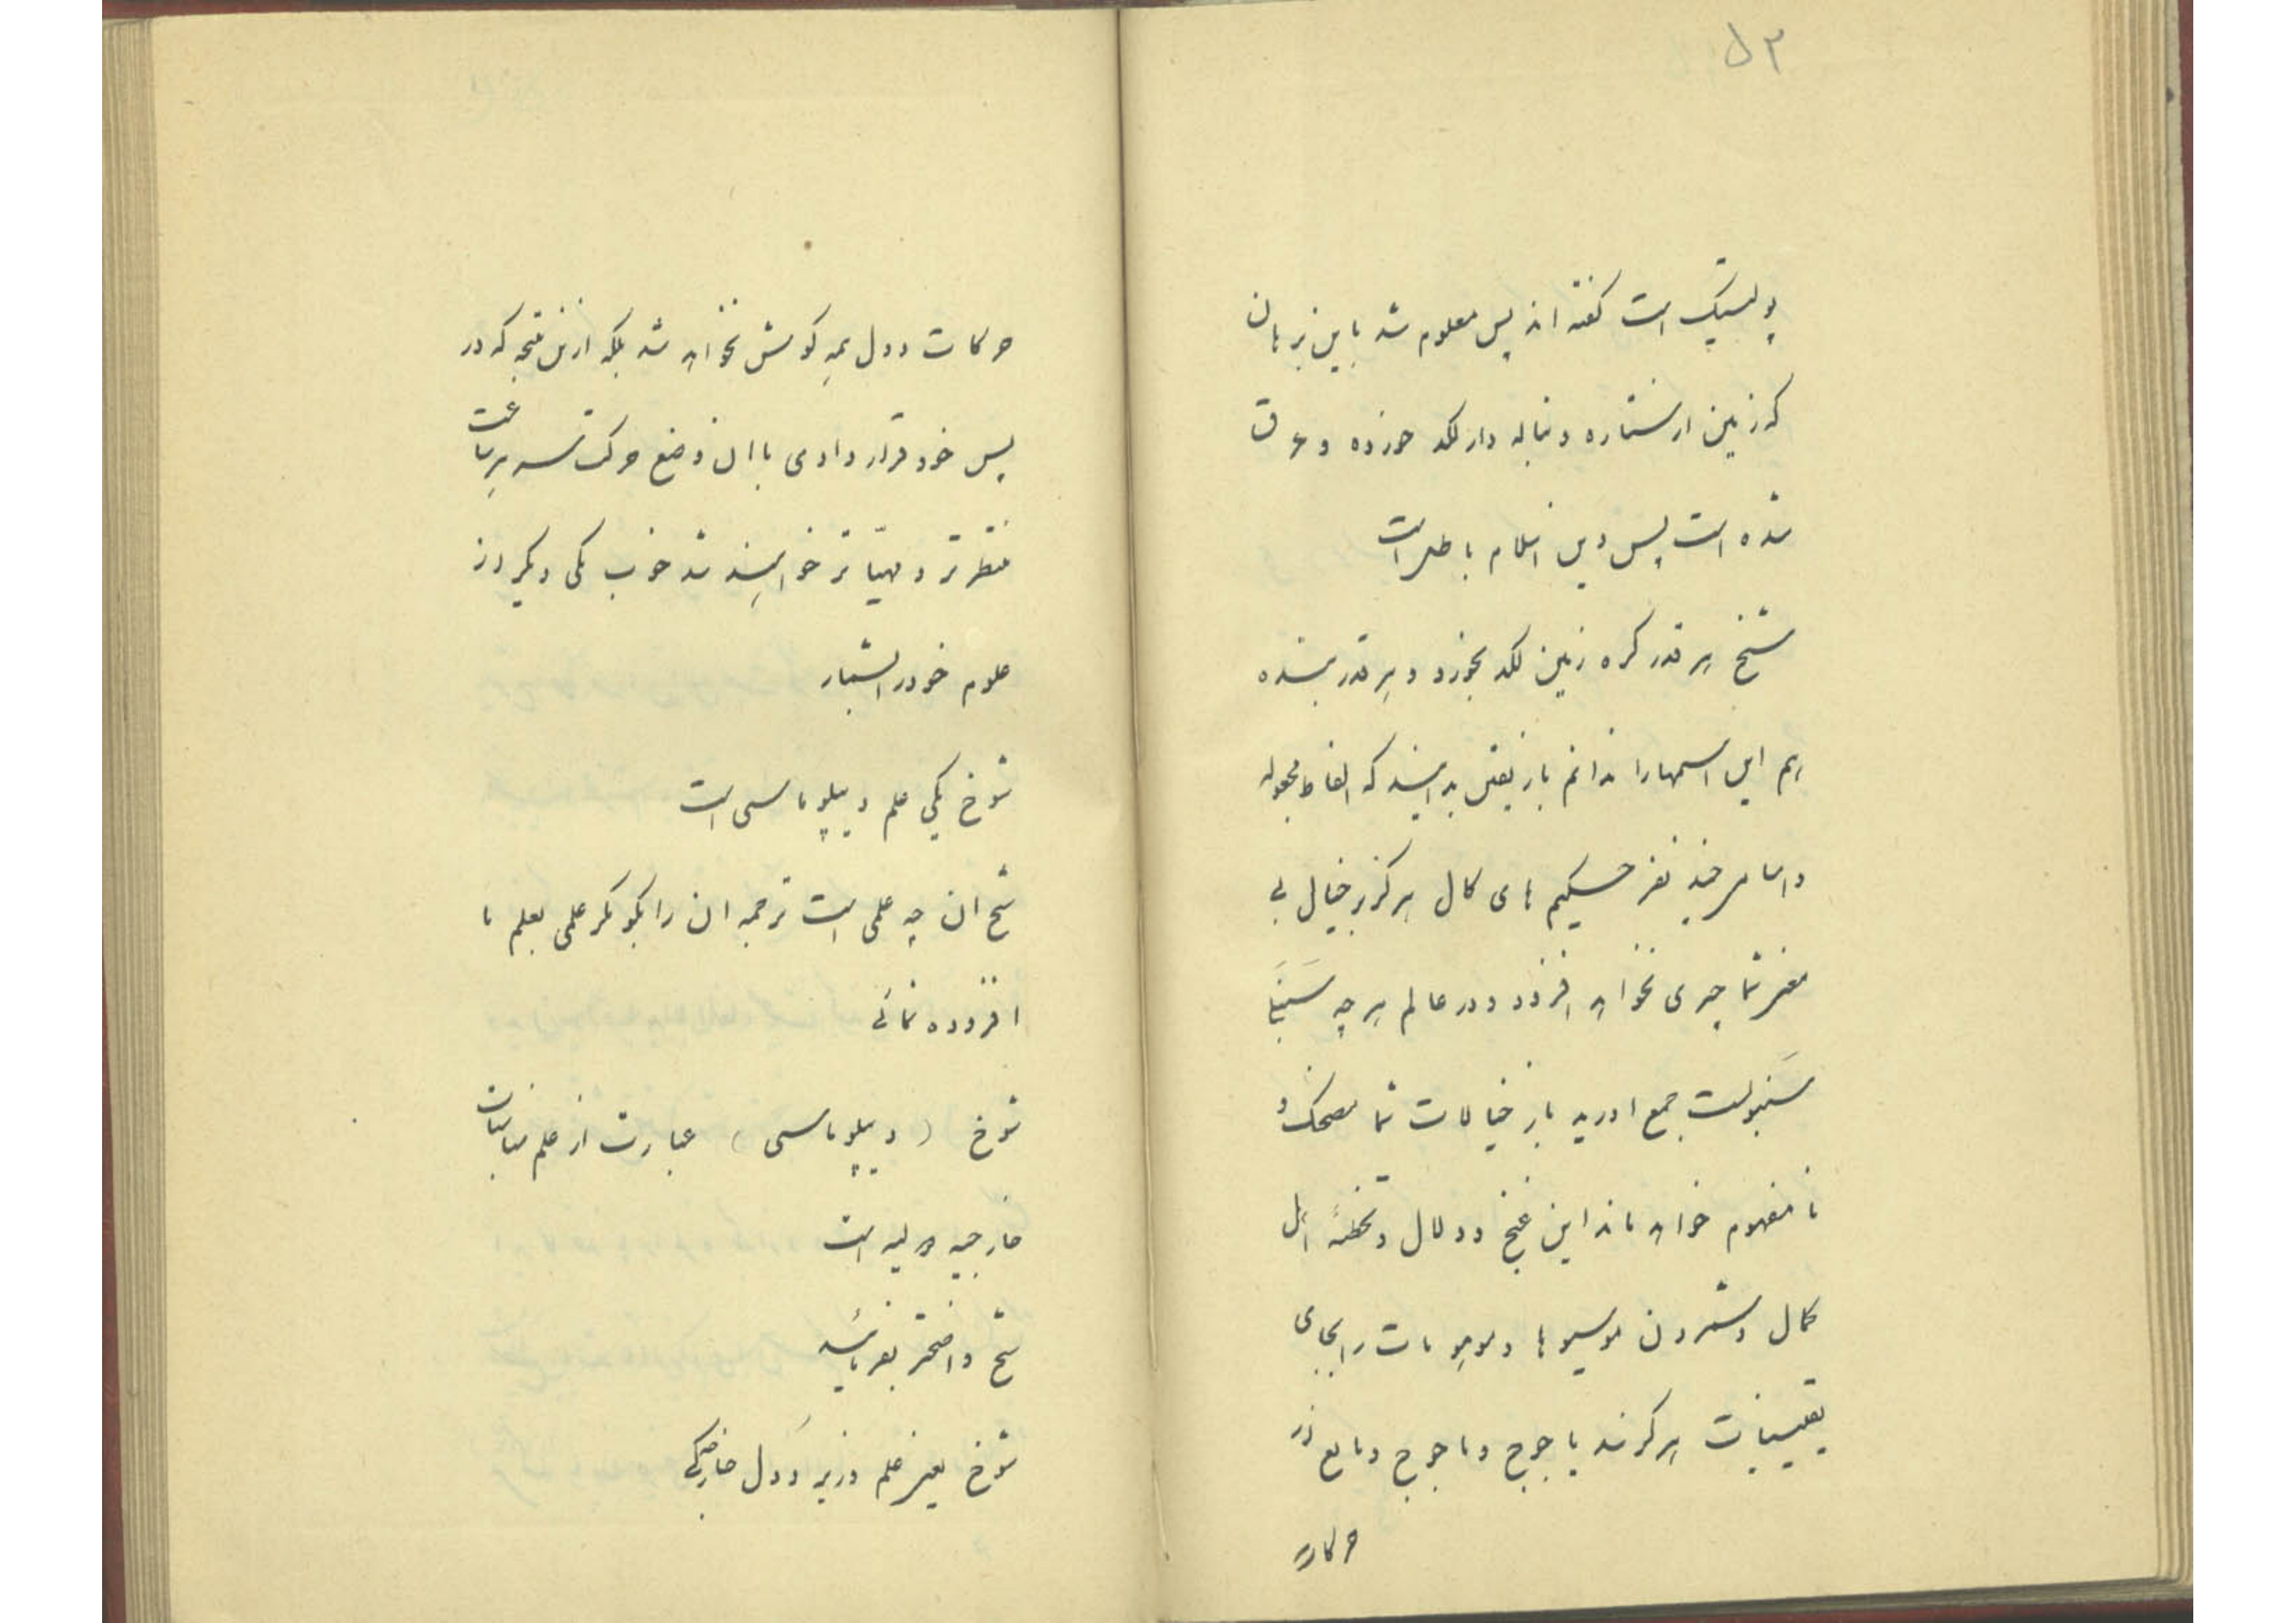 ۵۳
پولیتیک است گفته اند پس معلوم شد باین زبان
که زمین از ستاره دنباله دار لکد خورده و غرق
شده است پس دین اسلام باطل است
شیخ هر قدر کره زمین لکد بخورد و هر قدر بنده
هم این اسمها را ندانم باز یقین بدانید که الفاظ مجعوله
و اسامی چند نفر حکیم های کال هرگز بر خیال بی
مغز شما چیزی نخواهد افزود و در عالم هر چه
جمع اورید باز خیالات شما مضحک و
نا مفهوم خواهد ماند این غنج و دلال و تخطئه اهل
کمال و شمردن موسیوها و موهومات را بجای
یقینیات هرگز سد یاجوج و ماجوج و مانع در
حرکات
حرکات دول همه کوش نخواهد شد بلکه ازین نتیجه که در
پس خود قرار دادی با ان وضع حرکت سه بر
منتظر تر و مهیا تر خواهند شد خوب یکی دیگر از
علوم خود را بشمار
شوخ یکی علم دیپلوماسی است
شیخ ان چه علمی است ترجمه ان را بکو مکر علمی بعلم ما
افزوده نمائی
شوخ (دیپلوماسی) عبارت از علم مناسبات
خارجیه دولیه است
شیخ واضحتر بفرمائید
شوخ یعنی علم وزیر دول خارجکی